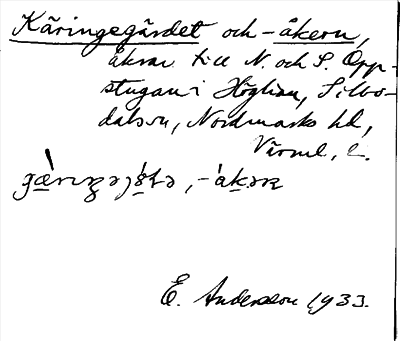 Käringegärdet och -åkern,
åkrar till N. och S. Opp-
stugan i Höglian, Silbo-
dals sn, Nordmarks hd,
Värml. l.
E. Andersson 1933.